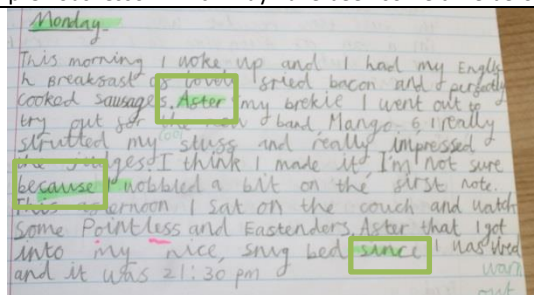 Monday
This morning I woke up and I had my Englis
h Breakfast of lovely fried bacon and perfectly
cooked sausages. After my brekie I went out to
try out for the new band Mango 6. I really
strutted my stuff and really impressed
the judges I think I made it, I'm not sure
because I wobbled a bit on the first note.
This afternoon I sat on the couch and watch
some Pointless and Eastenders. After that I got
into my nice, snug bed since I was tired
and it was 21:30 pm
worn
out